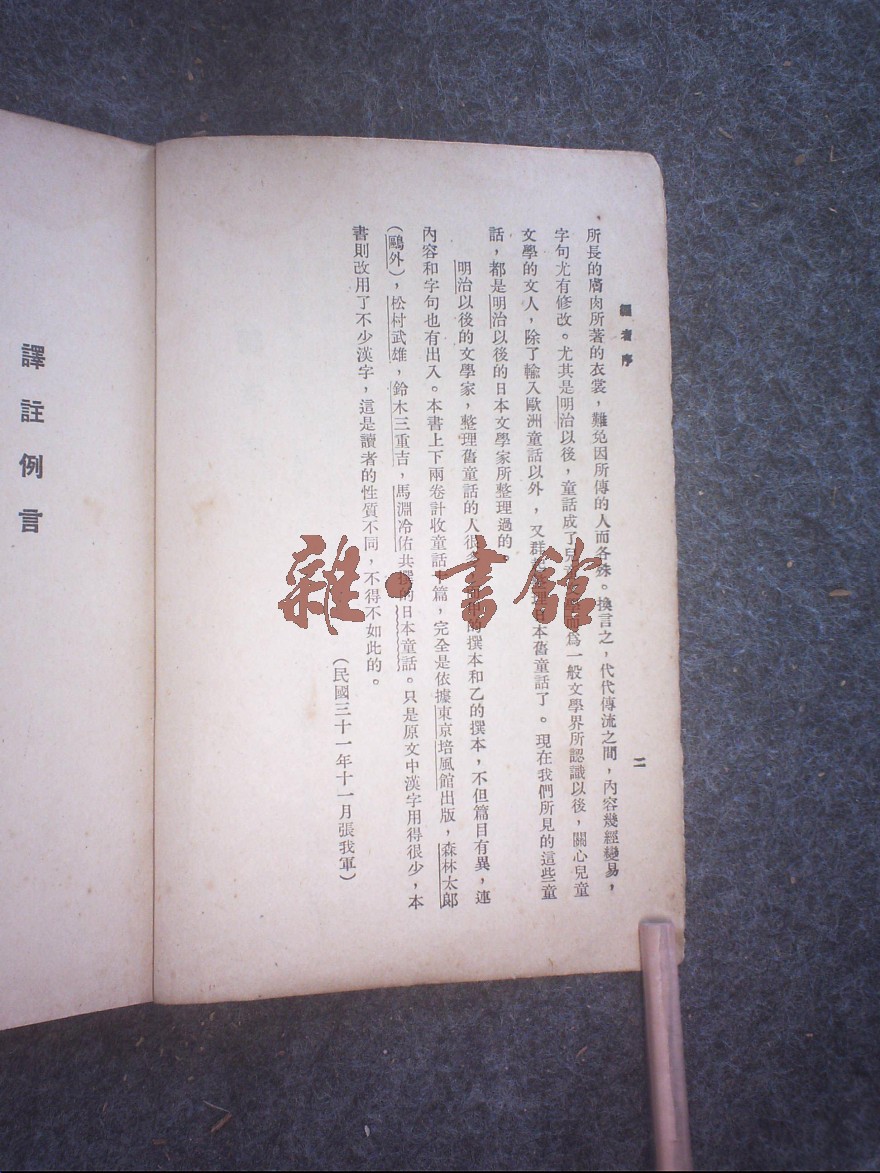 編者序
二
所長的膚肉所著的衣裳，難免因所傳的人而各殊。換言之，代代傳流之間，內容幾經變易，
字句尤有修改。尤其是明治以後，童話成了兒 為一般文學界所認識以後，關心兒童
文學的文人，除了輸入歐洲童話以外，又群 日本舊童話了。現在我們所見的這些童
話，都是明治以後的日本文學家所整理過的。
明治以後的文學家，整理舊童話的人很 的撰本和乙的撰本，不但篇目有異，連
內容和字句也有出入。本書上下兩卷計收童話 篇，完全是依據東京培風館出版，森林太郎
（鷗外），松村武雄，鈴木三重吉，馬淵冷佑共撰的日本童話。只是原文中漢字用得很少，本
書則改用了不少漢字，這是讀者的性質不同，不得不如此的。
（民國三十一年十一月張我軍）
譯註例言
雜·書館